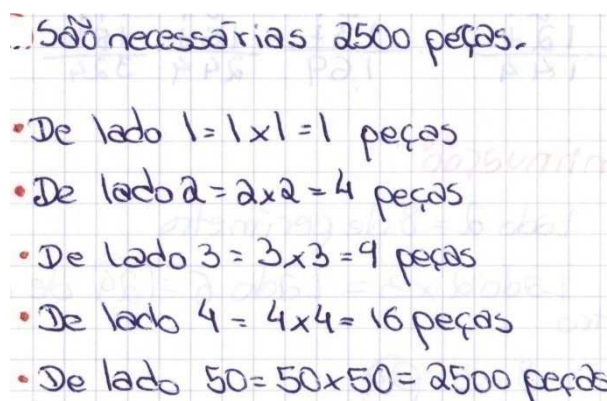 ∴ São necessárias 2500 peças.
• De lado 1 = 1x1 = 1 peças
• De lado 2 = 2x2 = 4 peças
• De lado 3 = 3x3 = 9 peças
• De lado 4 = 4x4 = 16 peças
• De lado 50 = 50x50 = 2500 peças